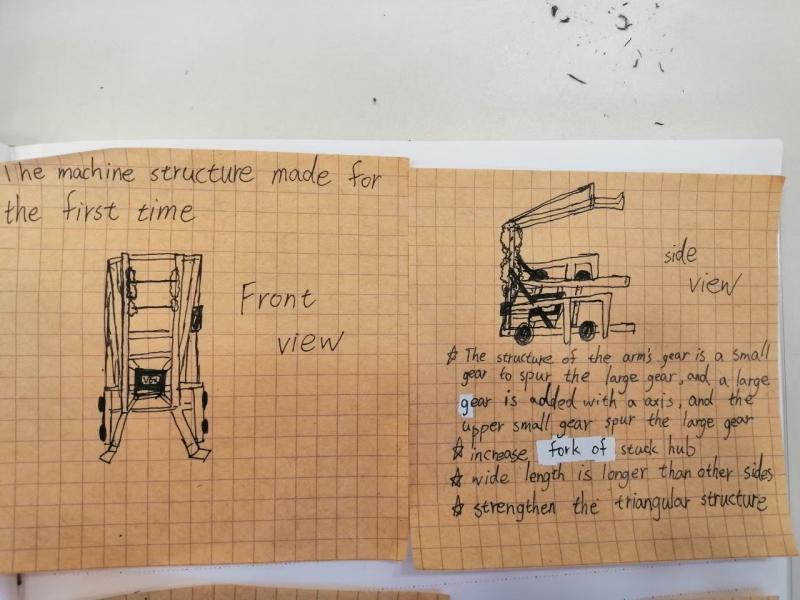 The machine structure made for
the first time
Front
view
side
view
☆ The structure of the arm's gear is a small
gear to spur the large gear, and a large
gear is added with a axis, and the
upper small gear spur the large gear
☆ increase fork of stuck hub
☆ wide length is longer than other sides
☆ strengthen the triangular structure